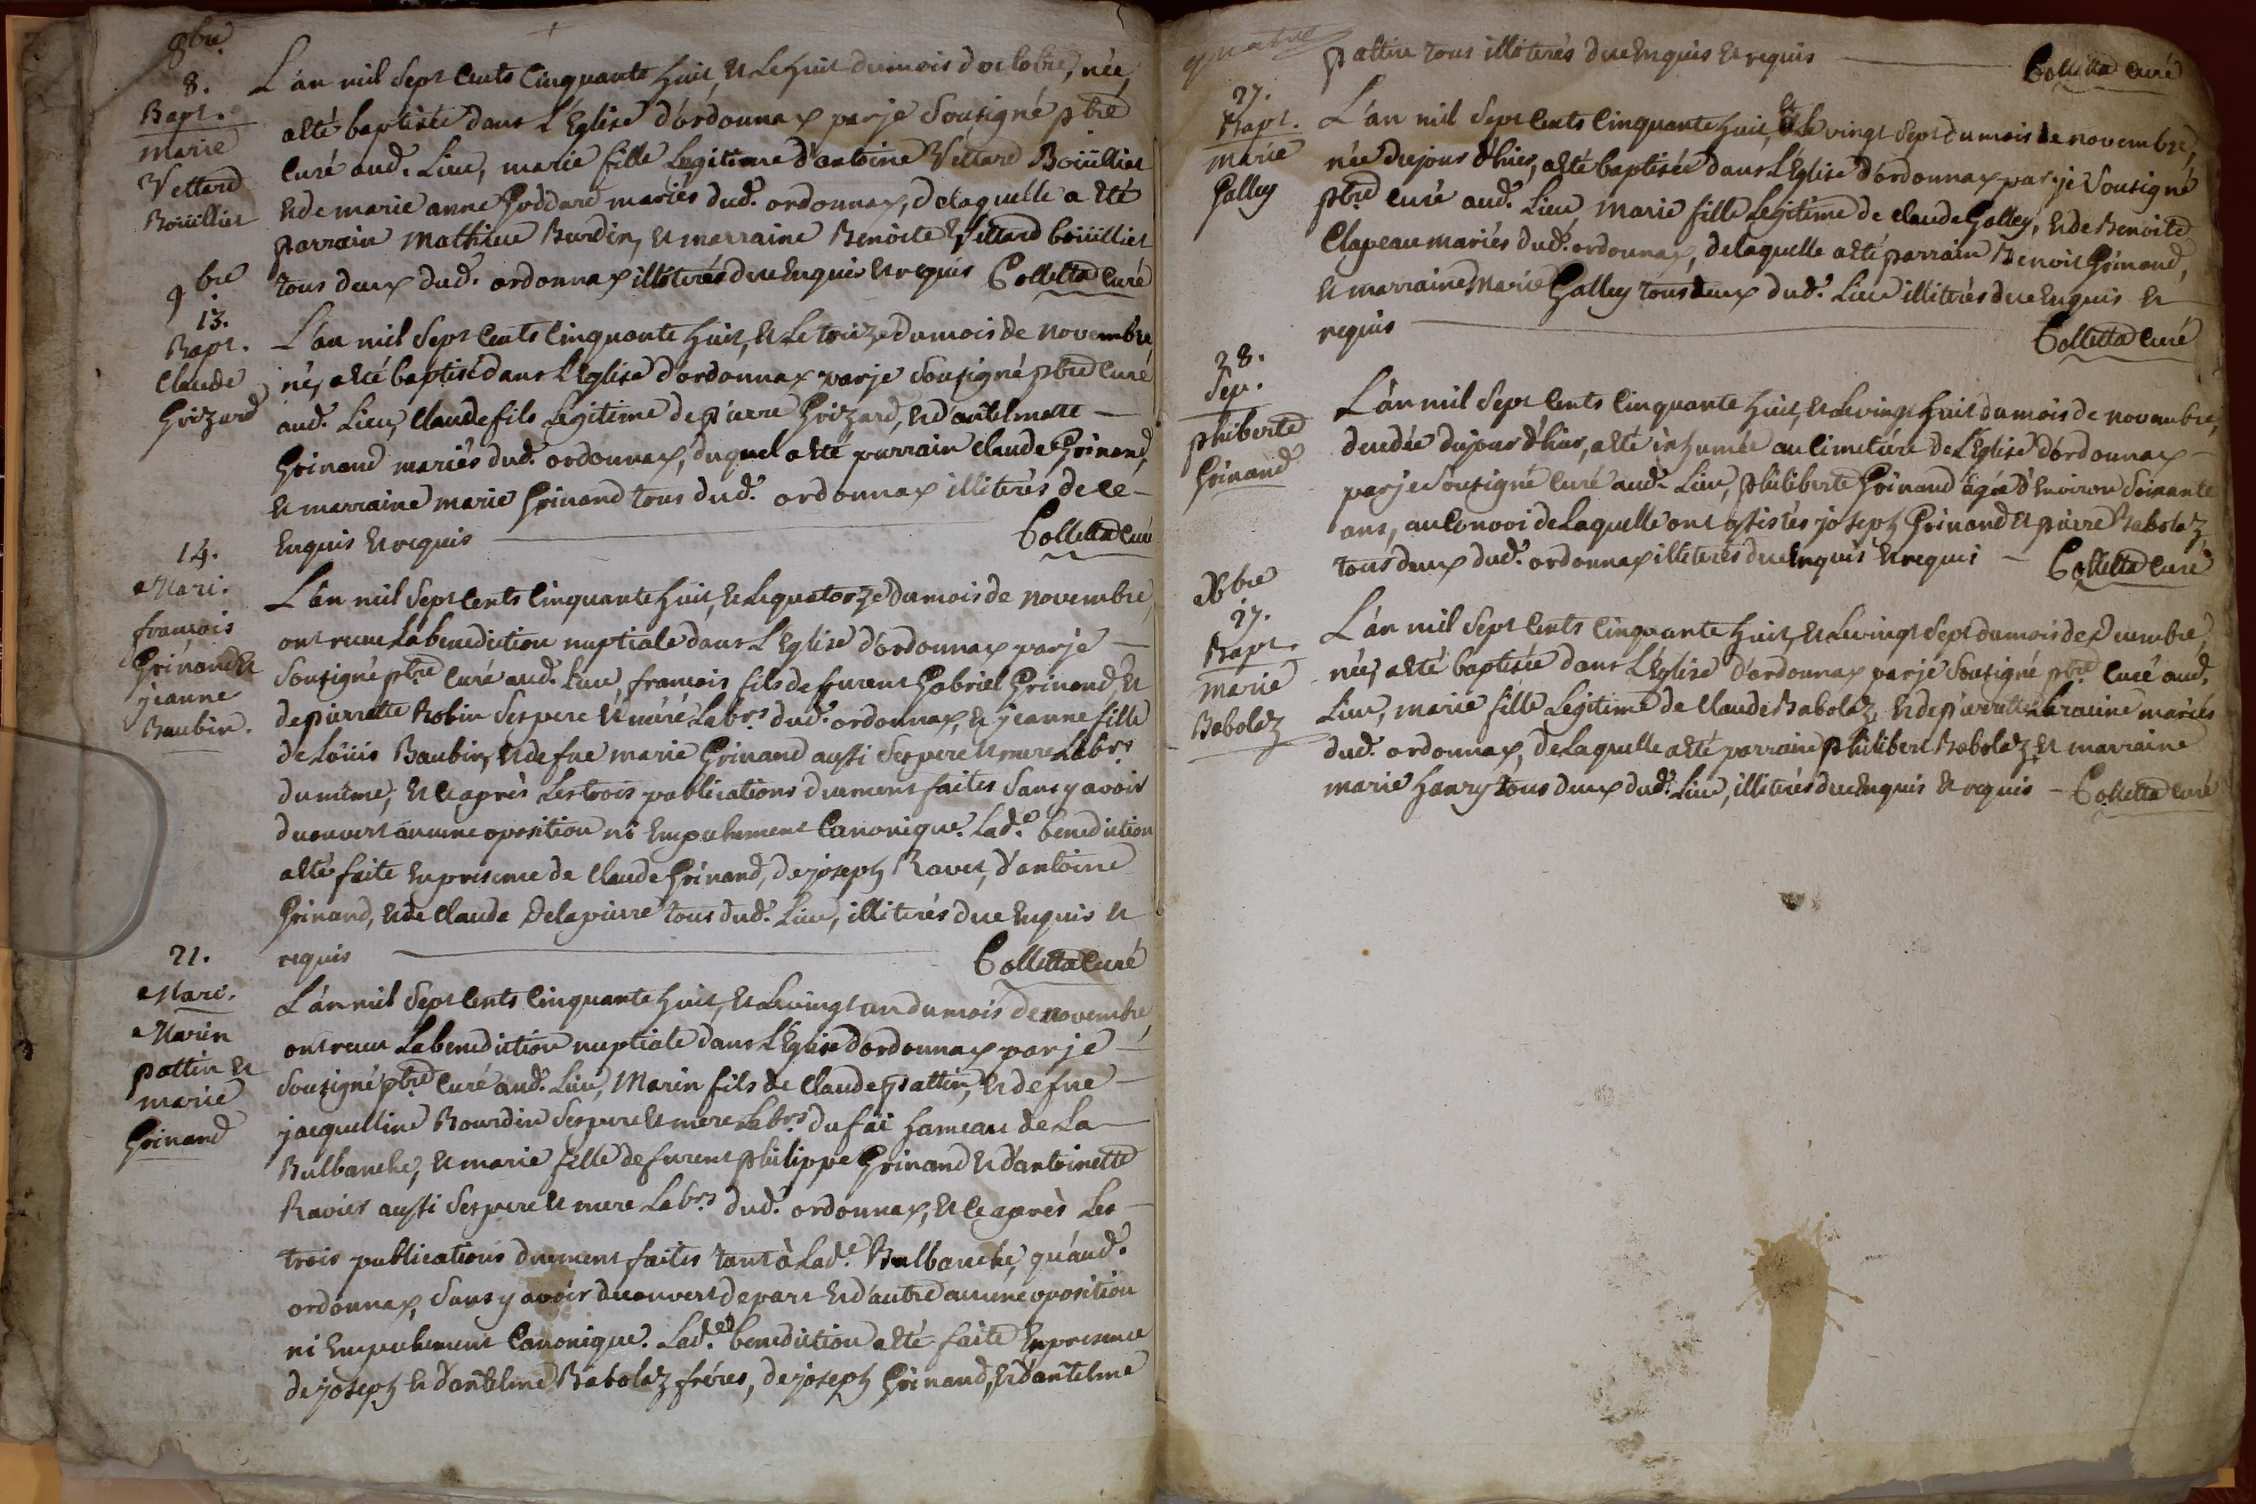 8bre
8.
Bapt.
marie
Vettard
Boüilliet
L'an mil Sept Cents Cinquante huit, et Le huit du mois d'octobre, née,
a êté baptisée dans L'Eglise d'ordonnax par je Sousigné pbre
Curé aud. Lieu, marie fille Legitime d'antoine Vettard Boüilliet
et de marie anne Goddard mariés dud. ordonnax, de laquelle a êté
parrain Mathieu Burdin, et marraine Benoite Vettard boüilliet
tous deux dud. ordonnax illiterés due enquis et requis Colletta Curé
9bre
13.
Bapt.
Claude
Grizard
L'an mil Sept Cents Cinquante huit, et Le treize du mois de novembre,
né, a êté baptisé dans L'Eglise d'ordonnax par je Sousigné pbre Curé
aud. Lieu, Claude fils Legitime de pierre Grizard, et d'antelmette
Grinand mariés dud. ordonnax, duquel a êté parrain Claude Grinand,
et marraine marie Grinand tous dud. ordonnax illiterés de ce
enquis et requis Colletta Curé
14.
Mari.
françois
Grinand et
jeanne
Baubin.
L'an mil Sept Cents Cinquante huit, et Le quatorze du mois de novembre,
ont receu La benediction nuptiale dans L'Eglise d'ordonnax par je
Sousigné pbre Curé aud. Lieu, francois fils de furent Gabriel Grinand, et
de pierrette Robin Ses pere et mere Labrs dud. ordonnax, et jeanne fille
de Loüis Baubin, et de fue marie Grinand aussi Ses pere et mere Labrs
du même, et ce après Les trois publications duement faites Sans y avoir
decouvert aucune oposition ni Empechement Canonique. Lad.e benediction
a êté faite En presence de Claude Grinand, de joseph Ravet, d'antoine
Grinand, et de Claude Delapierre tous dud. Lieu, illiterés due Enquis et
requis Colletta Curé
21.
Mari.
Marin
pattin et
marie
Grinand
L'an mil Sept Cents Cinquante huit, et Le vingt un du mois de novembre,
ont receu La benediction nuptiale dans L'Eglise d'ordonnax par je
Sousigné pbre Curé aud. Lieu, Marin fils de Claude pattin, et de fue
jacquelline Bourdin Ses pere et mere Labrs du fai hameau de La
Bulbanche, et marie fille de furent philippe Grinand et d'antoinette
Ravier aussi Ses pere et mere Labrs dud. ordonnax, et ce après Les
trois publications duement faites tant à Lad.e Bulbanche, qu'aud.
ordonnax, Sans y avoir decouvert de part et d'autre aucune oposition
ni Empechement Canonique. Lad.e benediction a êté faite En presence
de joseph et d'antelme Babolaz fréres, de joseph Grinand, et d'antelme
pattin tous illiterés due Enquis et requis Colletta Curé
27.
Bapt.
marie
Galley
L'an mil Sept Cents Cinquante huit, et Le vingt Sept du mois de novembre,
née du jour d'hier, a êté baptisée dans L'Eglise d'ordonnax par je Sousigné
pbre Curé aud. Lieu, Marie fille Legitime de Claude Galley, et de Benoite
Clapeau mariés dud. ordonnax, de laquelle a êté parrain Benoit Grinand,
et marraine Marie Galley tous deux dud. Lieu illiterés due Enquis et
requis Colletta Curé
28.
Sep.
philiberte
Grinand
L'an mil Sept Cents Cinquante huit, et Le vingt huit du mois de novembre,
decedée du jour d'hier, a êté inhumée au Cimetiere de L'Eglise d'ordonnax
par je Sousigné Curé aud. Lieu, philiberte Grinand agée d'Environ Soixante
ans, au Convoi de Laquelle ont assistés joseph Grinand et pierre Babolaz,
tous deux dud. ordonnax illiterés due Enquis et requis Colletta Curé
Xbre
27.
Bapt.
marie
Babolaz
L'an mil Sept Cents Cinquante huit, et Le vingt Sept du mois de decembre,
née, a êté baptisée dans L'Eglise d'ordonnax par je Sousigné pbre Curé aud.
Lieu, marie fille Legitime de Claude Babolaz, et de pierrette mariés
dud. ordonnax, de Laquelle a êté parrain philibert Babolaz et marraine
marie Hanry tous deux dud. Lieu, illiterés due Enquis et requis Colletta Curé